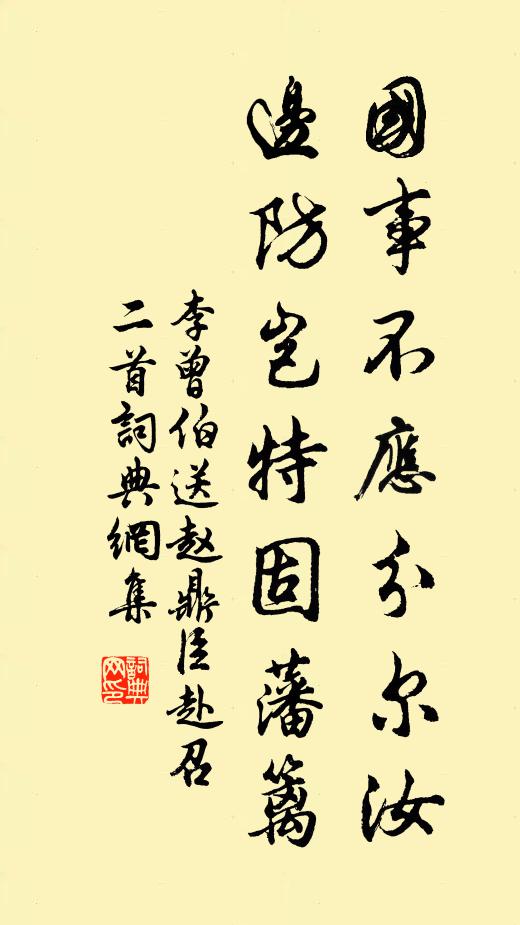 國事不應分尔汝
邊防岂特固藩籬
李曾伯送赵鼎臣赴召
二首詞典網集
詞典网印